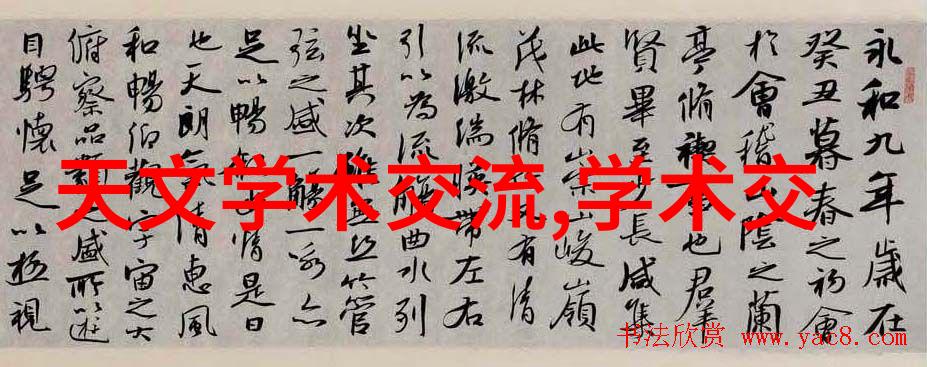 永和九年歲在
癸丑暮春之初會
於會稽山陰之蘭
亭脩禊事也群
賢畢至少長咸集
此地有崇山峻嶺
茂林脩有清
流激湍暎帶左右
引以為流觴曲水列
坐其次管
弦之盛一觴一詠亦
足以暢情是日
也天朗氣清惠風
和暢仰觀宇宙之大
俯察品類之盛所以遊
目騁懷足以極視
天文学术交流,学术交
书法欣赏 www.yac8.com